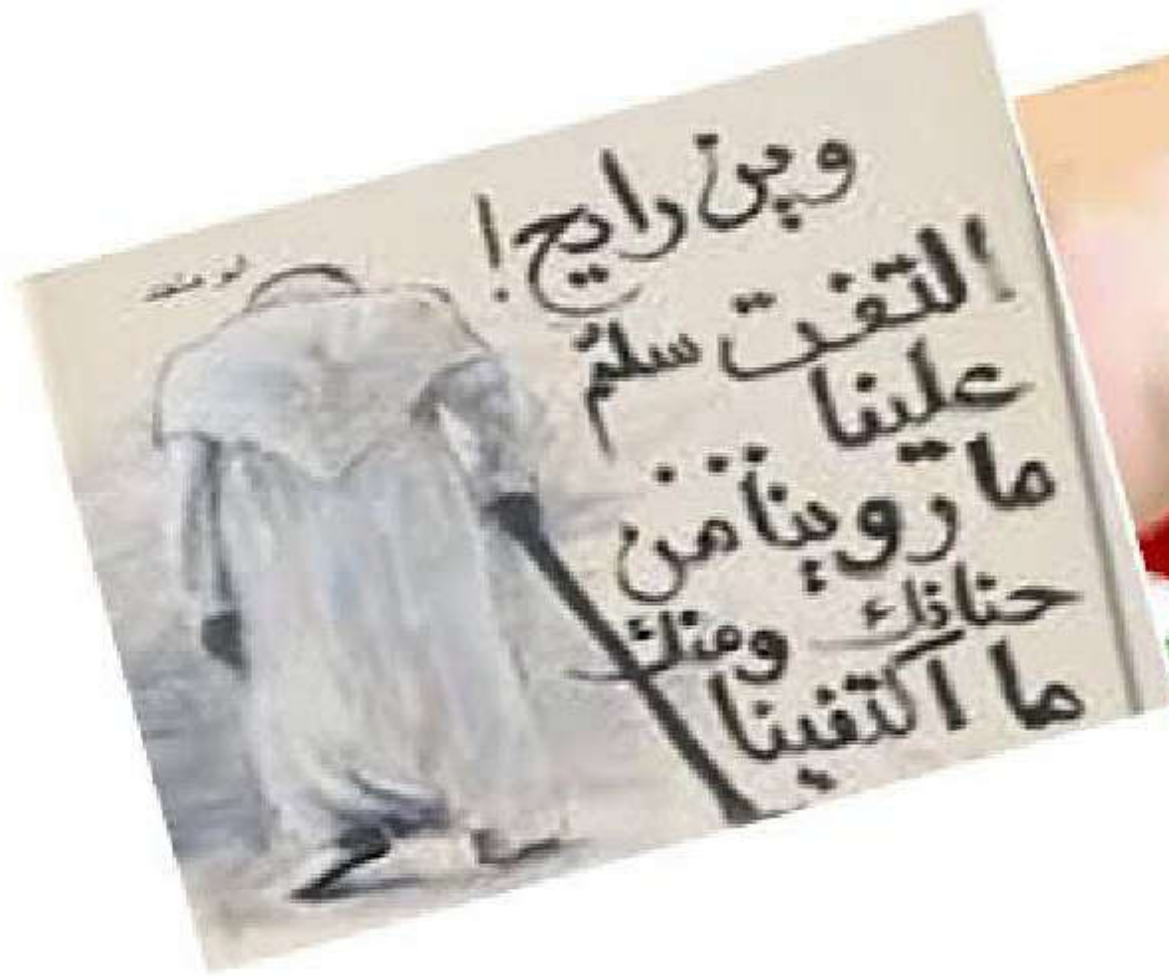 وين رايح!
التفت سلم
علينا
ما روينا من
حنانك ومنك
ما اكتفينا